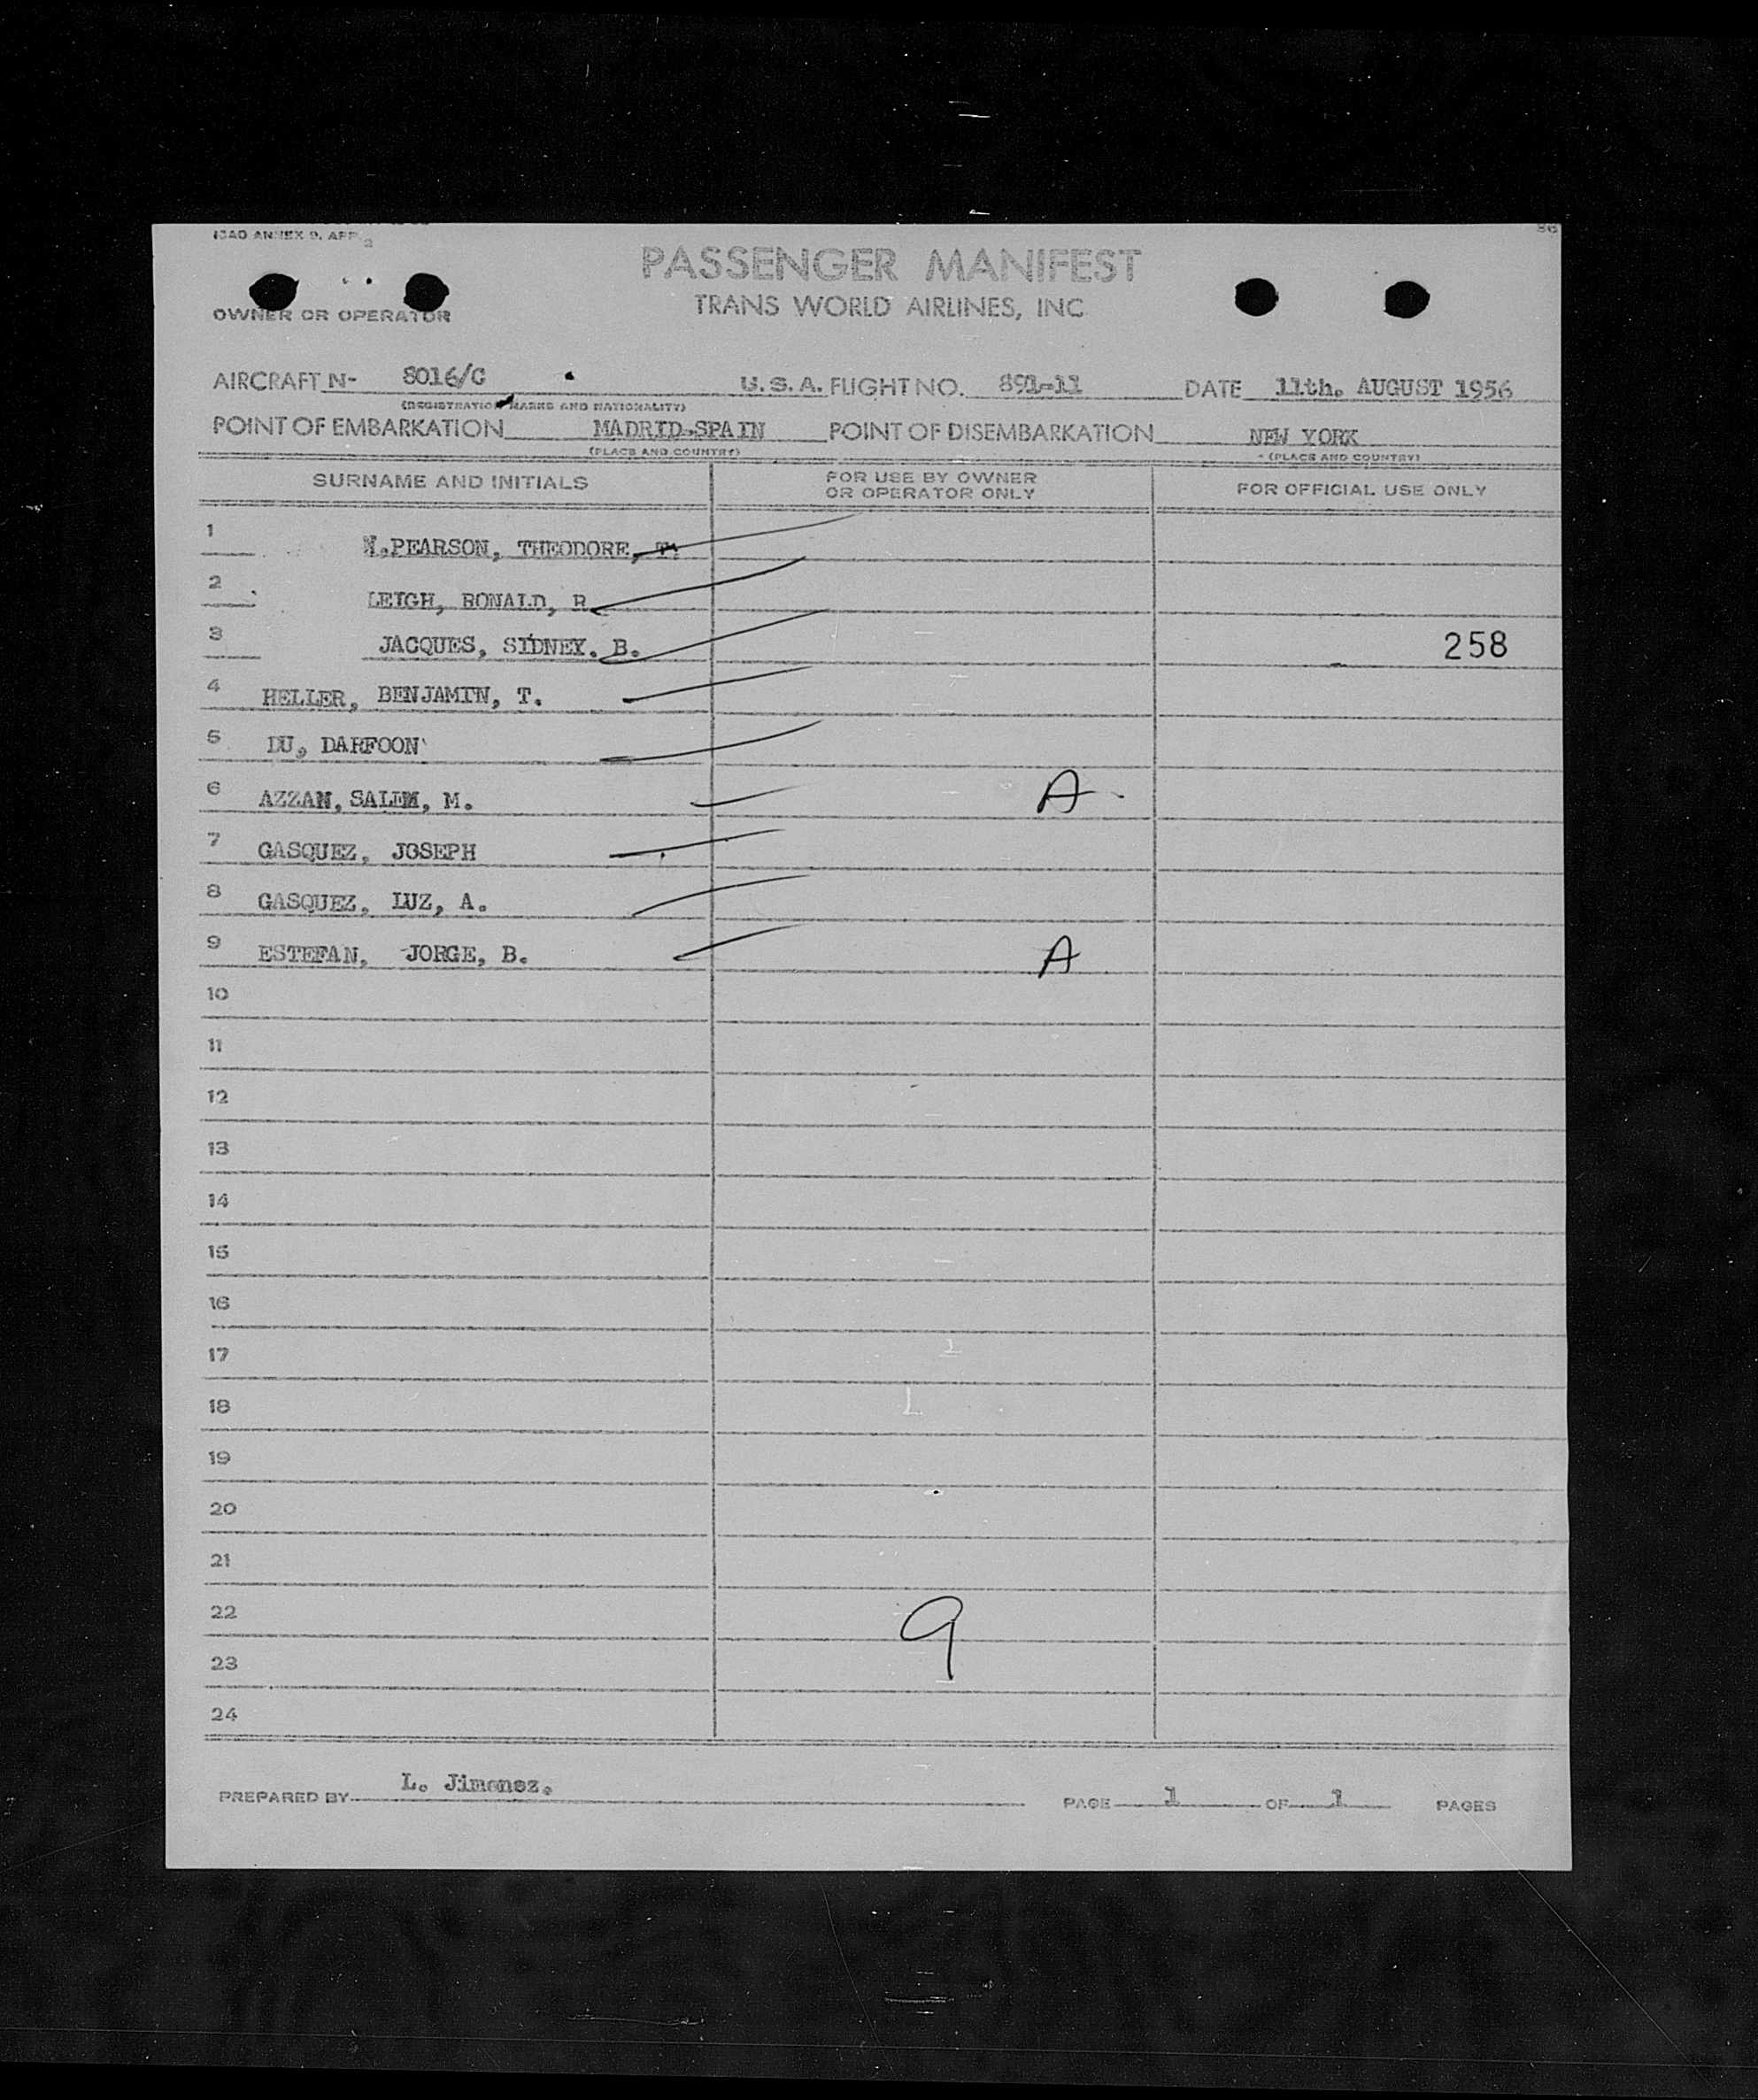 ICAO ANNEX 9, APP. 3
86
PASSENGER MANIFEST
TRANS WORLD AIRLINES, INC
OWNER OR OPERATOR
AIRCRAFT N- 8016/C U. S. A. FLIGHT NO. 891-11 DATE 11th. AUGUST 1956
(REGISTRATION MARKS AND NATIONALITY)
POINT OF EMBARKATION MADRID-SPAIN POINT OF DISEMBARKATION NEW YORK
(PLACE AND COUNTRY) (PLACE AND COUNTRY)
SURNAME AND INITIALS FOR USE BY OWNER OR OPERATOR ONLY FOR OFFICIAL USE ONLY
1 N.PEARSON, THEODORE, T.
2 LEIGH, RONALD, R
3 JACQUES, SIDNEY. B. 258
4 HELLER, BENJAMIN, T.
5 DU, DARFOON
6 AZZAN, SALEM, M. A
7 GASQUEZ, JOSEPH
8 GASQUEZ, LUZ, A.
9 ESTEFAN, JORGE, B. A
10
11
12
13
14
15
16
17
18
19
20
21
22 9
23
24
PREPARED BY L. Jimenez. PAGE 1 OF 1 PAGES